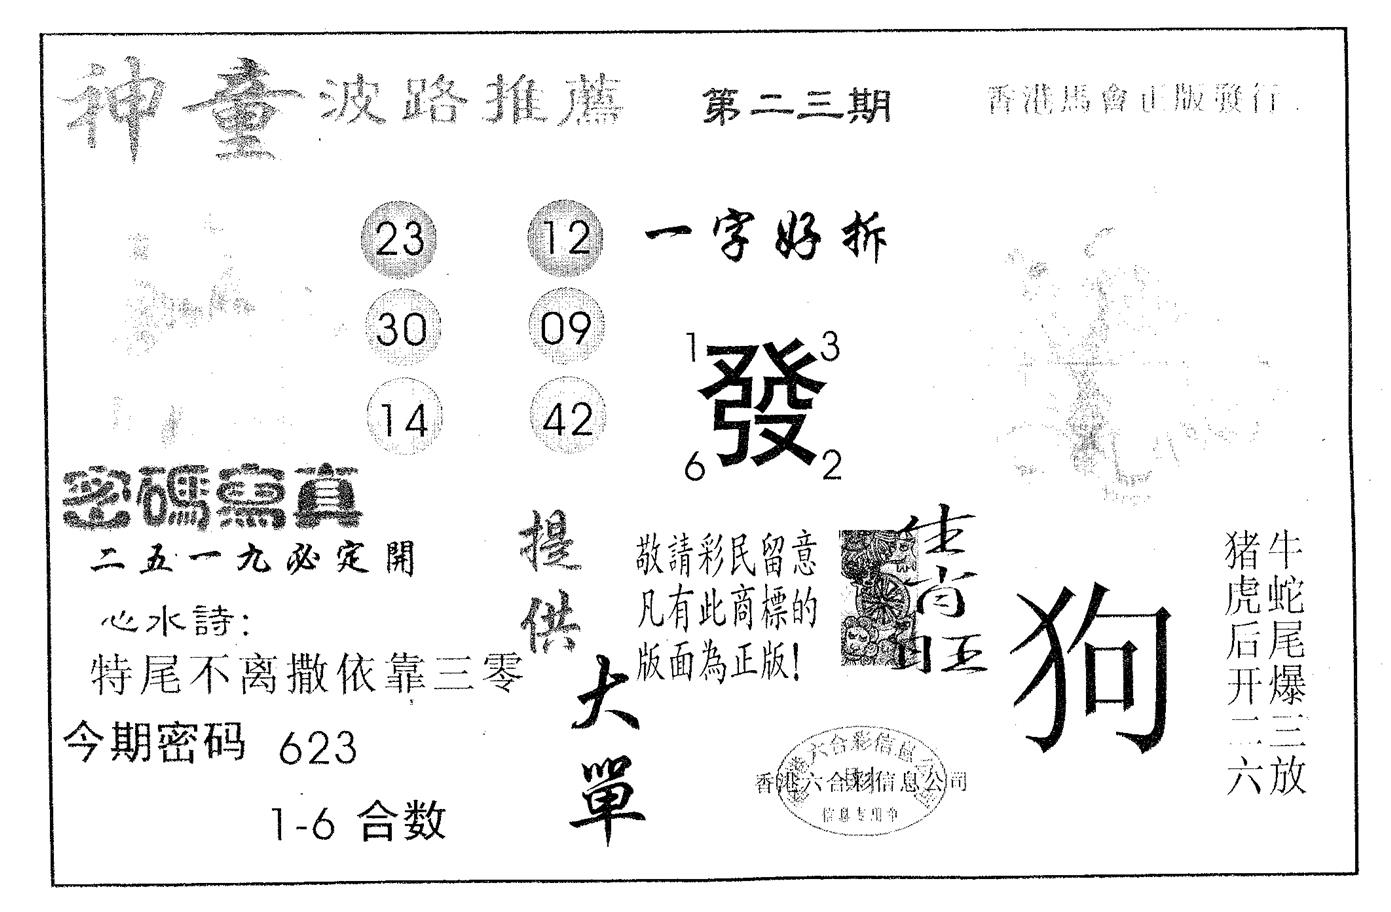 神童波路推薦
第二三期
香港馬會正版發行
23 12
30 09
14 42
一字好拆
1 3
發
6 2
密碼寫真
二五一九必定開
心水詩:
特尾不离撒依靠三零
今期密码 623
1-6 合数
提供
大單
敬請彩民留意
凡有此商標的
版面為正版!
生肖旺
狗
牛蛇尾爆三放
猪虎后开二六
香港六合彩信息公司
香港六合彩信息公司